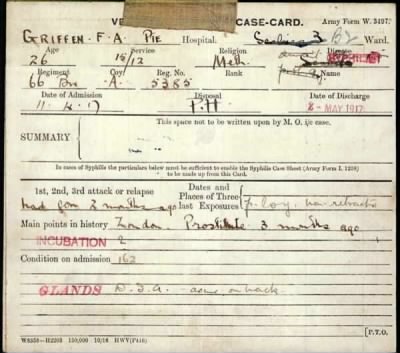 CASE-CARD. Army Form W. 3497.
GRIFFEN. F. A. PTE Hospital. 3 Ward.
Age Service Religion Disease
26 15/12 Meth. SYPHILIS
Regiment Coy Reg. No. Rank Name
66 A. 5385
Date of Admission Disposal Date of Discharge
11. 4. 17 P.H - MAY 1917
This space not to be written upon by M. O. i/c case.
SUMMARY
In cases of Syphilis the particulars below must be sufficient to enable the Syphilis Case Sheet (Army Form I. 1238)
to be made up from this Card.
1st, 2nd, 3rd attack or relapse Dates and
Places of Three
last Exposures
had gon 2 months ago
Main points in history London. Prostitute 3 months ago
INCUBATION 2
Condition on admission 162
GLANDS acne on back.
W8358—H2203 150,000 10/16 HWV(P416)
[P.T.O.